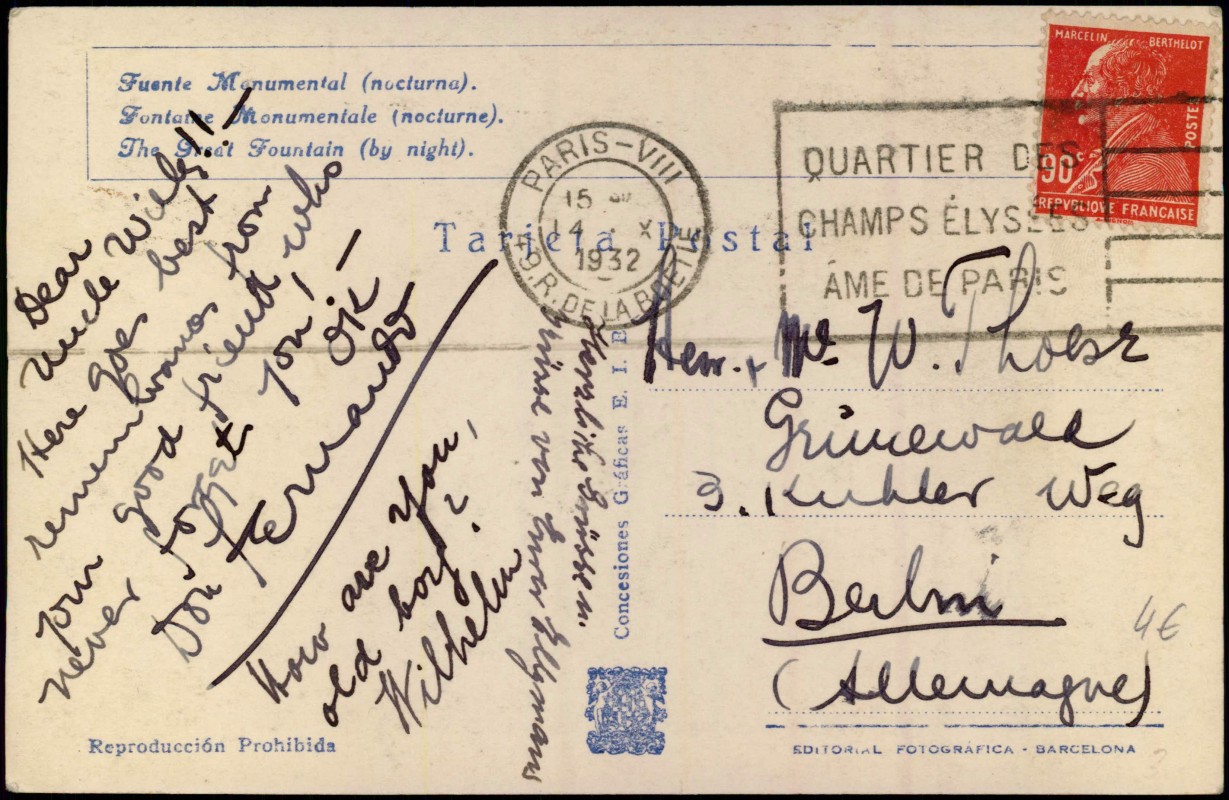 Fuente Monumental (nocturna).
Fontaine Monumentale (nocturne).
The Great Fountain (by night).
Tarjeta Postal
MARCELIN BERTHELOT
POSTES
90c
REPVBLIQVE FRANÇAISE
PARIS-VIII
15
14 X
1932
49.R.DE LA BOETIE
QUARTIER DES
CHAMPS ÉLYSÉES
ÂME DE PARIS
Dear
Uncle Willy!!-
Here goes best
remembrances from
your good friend who
never forget you,
Don OK-
Fernando
How are you,
old boy?
Wilhelm
Herzliche Grüssen.
von Eurer
Concesiones Gráficas E. I. B
Herr. + W.
Grünewald
3. Kuhler Weg
Berlin
(Allemagne)
4€
Reproducción Prohibida
EDITORIAL FOTOGRÁFICA - BARCELONA